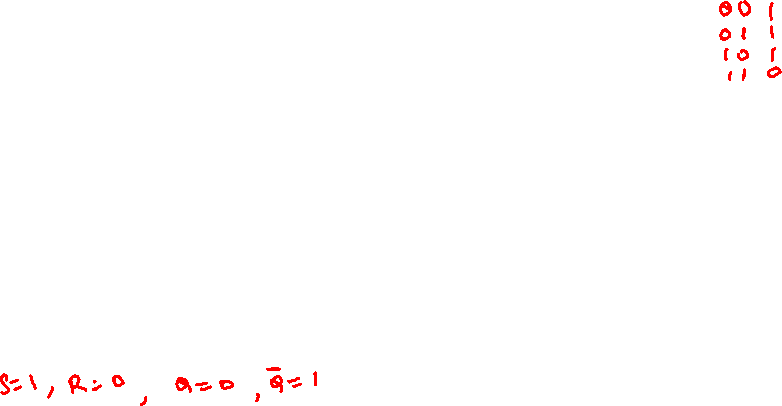 0 0 1
0 1 1
1 0 1
1 1 0
S=1, R=0, Q=0, Q̅=1